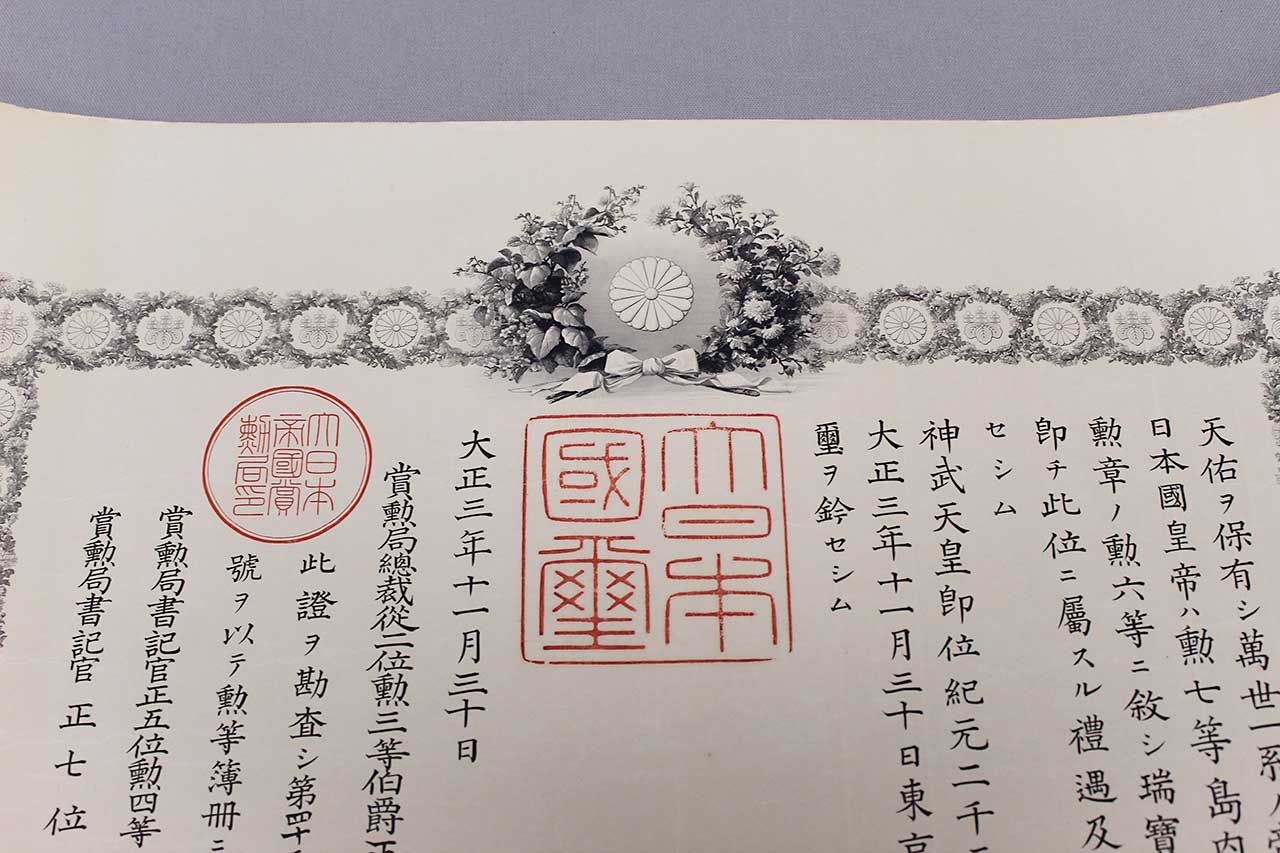 天佑ヲ保有シ萬世一系ノ帝
日本國皇帝ハ勲七等島内
勲章ノ勲六等ニ敘シ瑞寶
卽チ此位ニ屬スル禮遇及
セシム
神武天皇卽位紀元二千
大正三年十一月三十日東京
璽ヲ鈐セシム
大日本
國璽
大正三年十一月三十日
賞勲局總裁從二位勲三等伯爵正
此證ヲ勘査シ第四十
號ヲ以テ勲等簿册ニ
大日本
帝國賞
勲局印
賞勲局書記官正五位勲四等
賞勲局書記官正七位